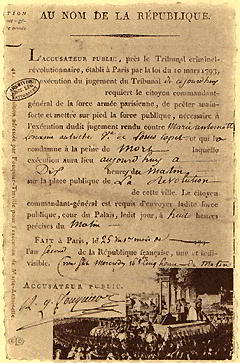 AU NOM DE LA RÉPUBLIQUE.
L'ACCUSATEUR PUBLIC, près le Tribunal criminel-
révolutionnaire, établi à Paris par la loi du 10 mars 1793,
en exécution du jugement du Tribunal de ce jourd'huy
requiert le citoyen commandant-
général de la force armée parisienne, de prêter main-
forte et mettre sur pied la force publique, nécessaire à
l'exécution dudit jugement rendu contre Marie antoinette
Lorraine autriche Ve de Louis Capet et qui la
condamne à la peine de Mort laquelle
exécution aura lieu aujourd'huy à
Dix heures du Matin
sur la place publique de La Révolution
de cette ville. Le citoyen
commandant-général est requis d'envoyer ladite force
publique, cour du Palais, ledit jour, à huit heures
précises du Matin
FAIT à Paris, le 25
l'an second de la République française, une et indi-
visible.
ACCUSATEUR PUBLIC.